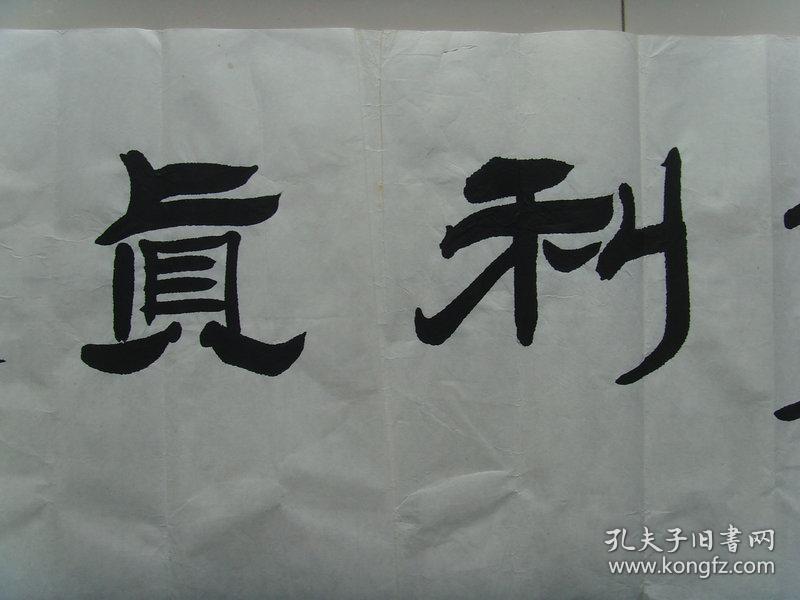 利貞
孔夫子旧書网
www.kongfz.com